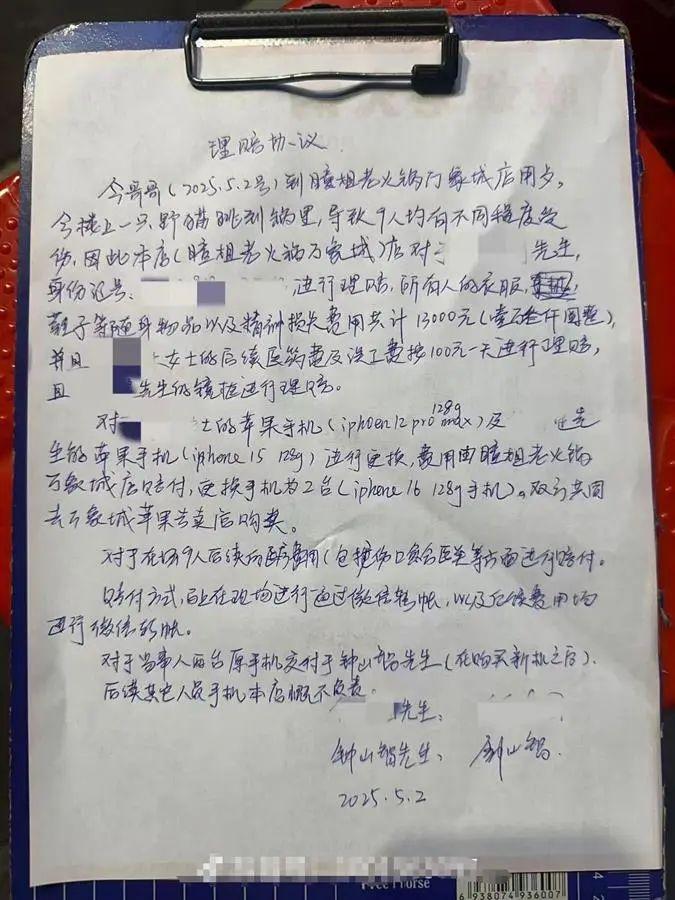 理赔协议
今哥哥(2025.5.2号)到瞳姐老火锅万象城店用歺,
令楼上一只野猫跳到锅里,导致9人均有不同程度受
伤,因此本店(瞳姐老火锅万象城)店对于 先生,
身份证号: 进行理赔,所有人的衣服,
鞋子等随身物品以及精神损失费用共计13000元(壹万叁仟圆整),
并且 女士的后续医药费及误工费按100元一天进行理赔,
且 先生的镜框进行理赔。
对 士的苹果手机(iphoen 12 pro max 128g)及 先
生的苹果手机(iphone 15 128g)进行更换,费用由瞳姐老火锅
万象城店赔付,更换手机为2台(iphone 16 128g手机)。双方共同
去万象城苹果专卖店购买。
对于在场9人后续后医疗费用(包括伤口愈合医美等方面进行赔付。
赔付方式,由在现场进行通过微信转帐,以及后续费用均
进行微信转帐。
对于当事人两台原手机交付于钟山智先生(在购买新机之后).
后续其它人员手机本店概不负责。
先生:
钟山智先生:
2025.5.2
Free Horse
6 938074 936007